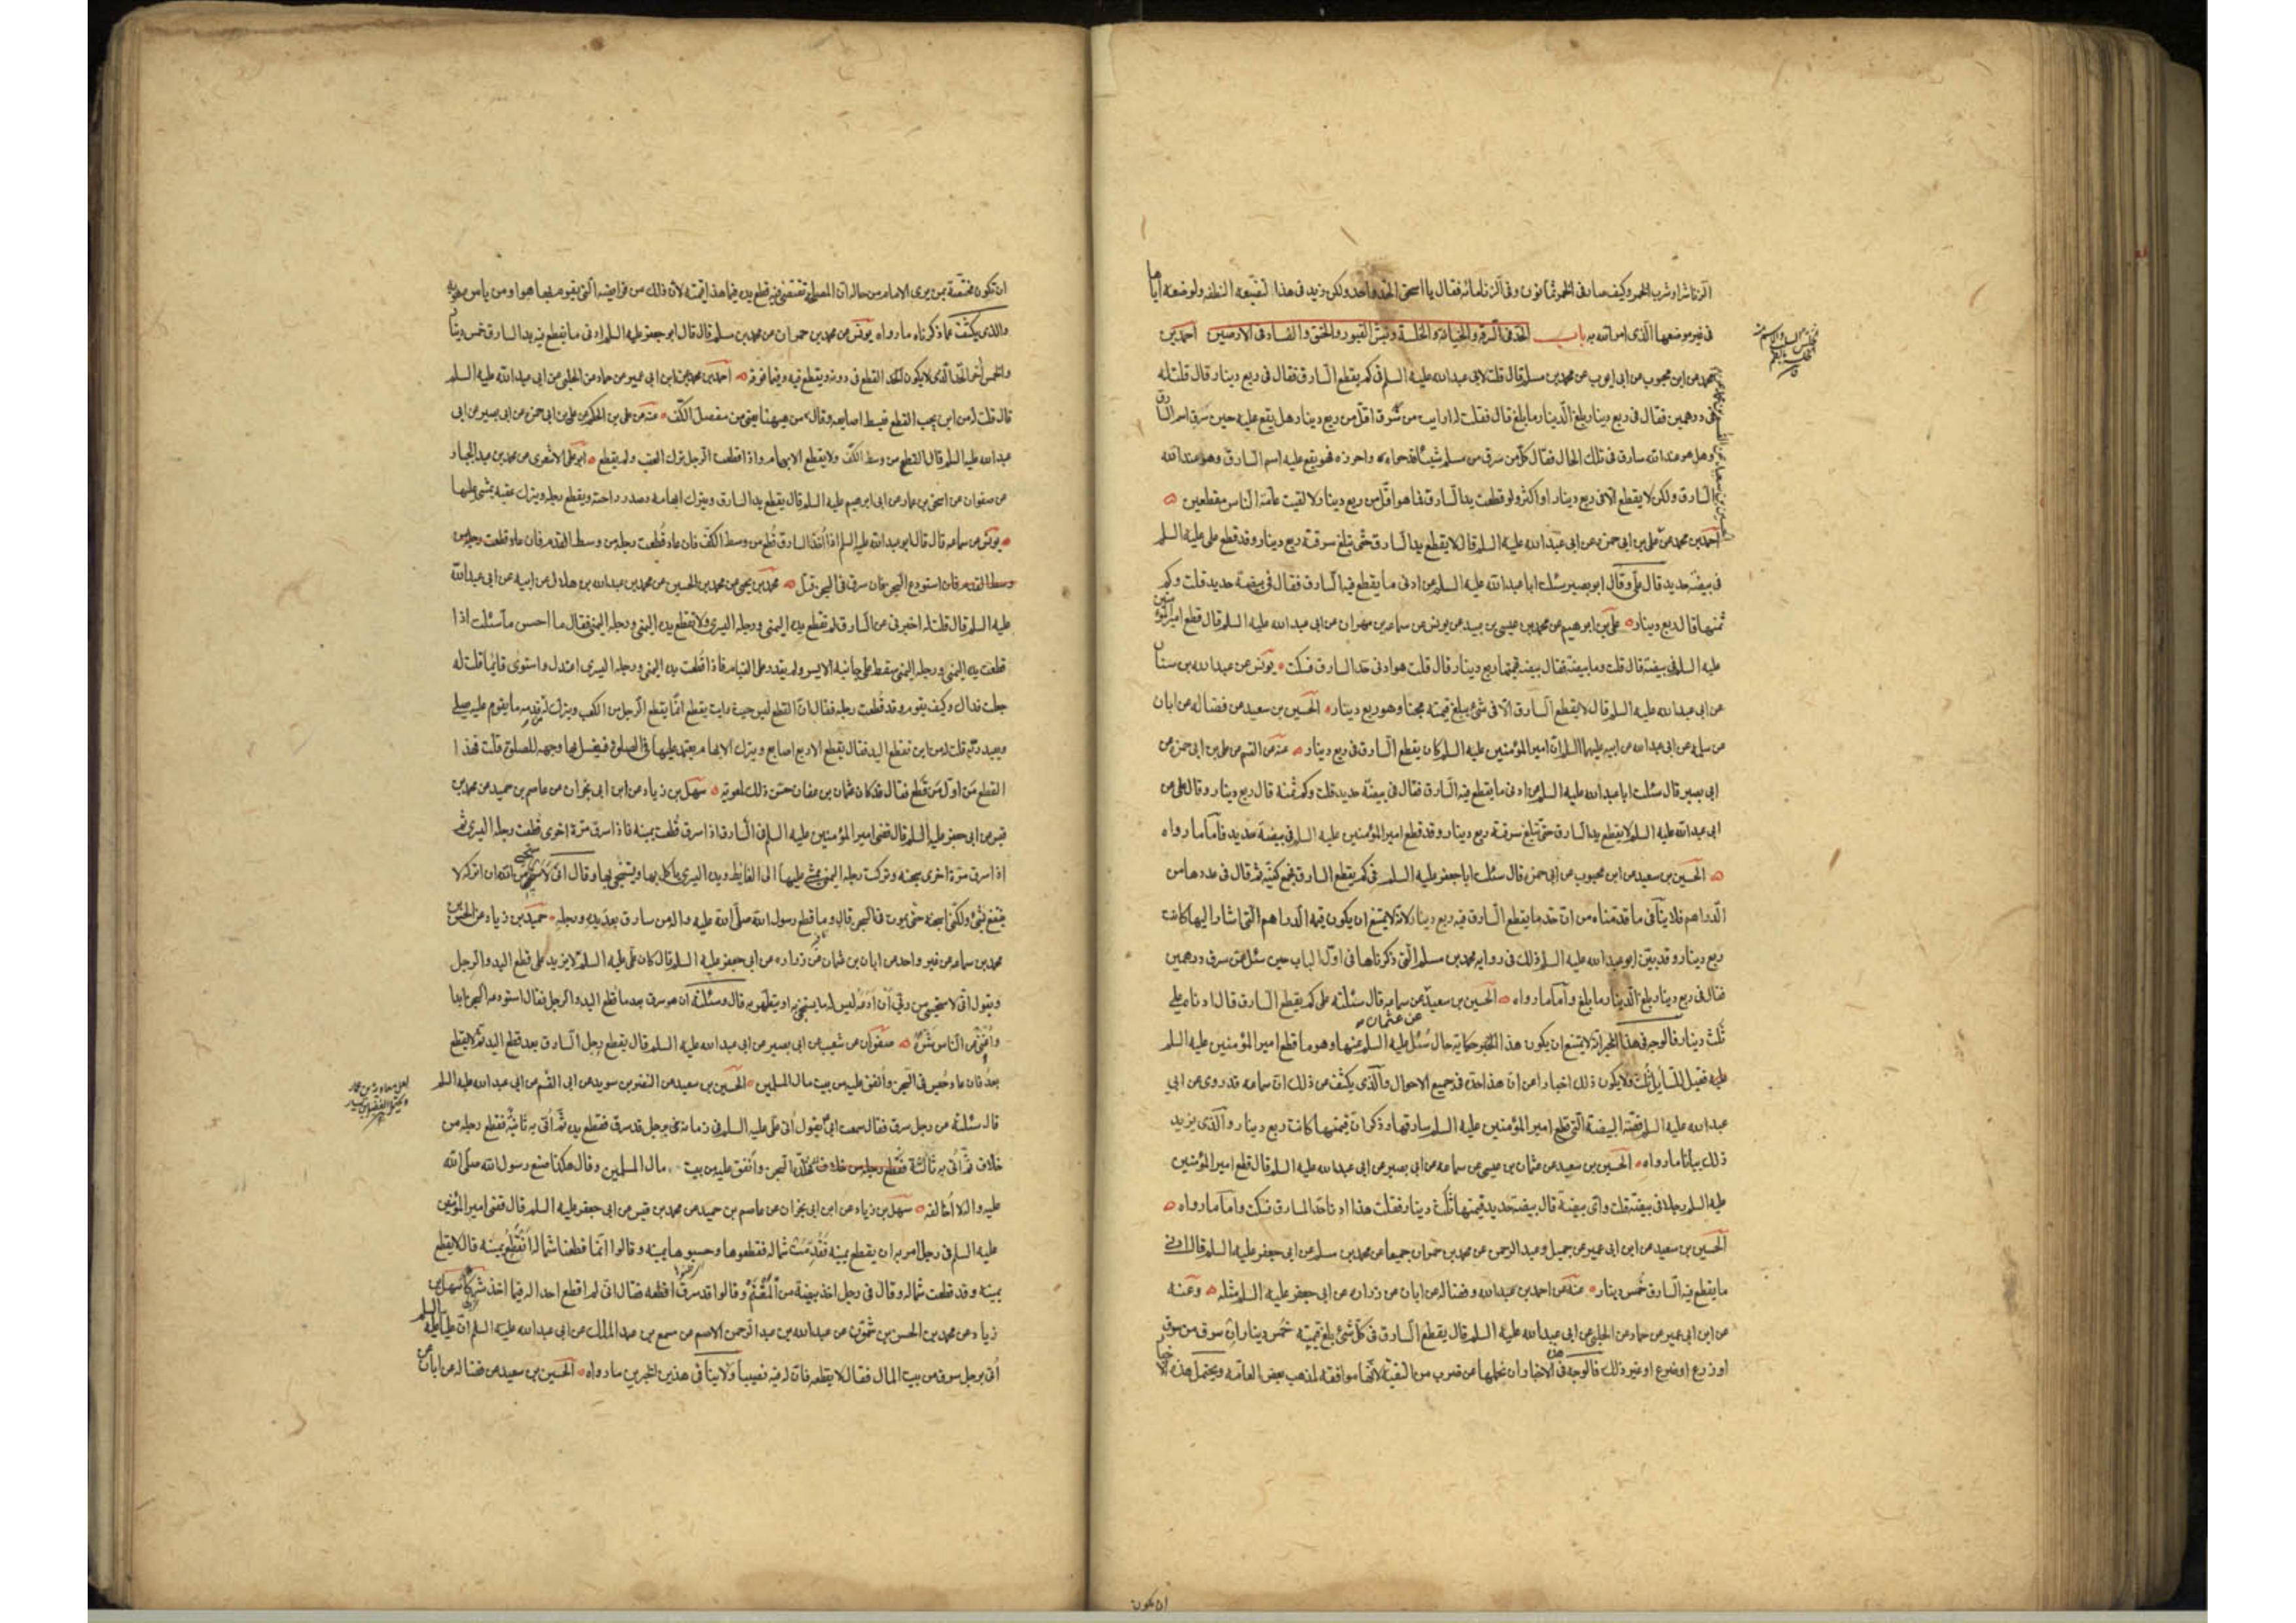 الزنا شر او شرب الخمر وكيف صار فى الخمر ثمانون وفى الزنا مائة فقال يا اسحق الحد واحد ولكن زيد فى هذا لتضييعه النطفة ولوضعه اياها
فى غير موضعها الذى امر الله به باب الحد فى السرقة والخيانة والخلسة ونبش القبور والخنق والفساد فى الارضين احمد بن
محمد عن ابن محبوب عن ابى ايوب عن محمد بن مسلم قال قلت لابى عبد الله عليه السلم فى كم يقطع السارق فقال فى ربع دينار قال قلت له
فى درهمين فقال فى ربع دينار بلغ الدينار ما بلغ قال فقلت له ارايت من سرق اقل من ربع دينار هل يقع عليه حين سرق اسم السارق
وهل هو عند الله سارق فى تلك الحال فقال كل من سرق من مسلم شيئا قد حواه واحرزه فهو يقع عليه اسم السارق وهو عند الله
السارق ولكن لا يقطع الا فى ربع دينار او اكثر ولو قطعت يد السارق فيما هو اقل من ربع دينار لالقيت عامة الناس مقطعين
احمد بن محمد عن على بن ابى حمزه عن ابى عبد الله عليه السلم قال لا يقطع يد السارق حتى تبلغ سرقته ربع دينار وقد قطع على عليه السلم
فى بيضة حديد قال على وقال ابو بصير سئلت ابا عبد الله عليه السلم عن ادنى ما يقطع فيه السارق فقال فى بيضة حديد قلت وكم
ثمنها قال ربع دينار على بن ابرهيم عن محمد بن عيسى بن عبيد عن يونس عن سماعه بن مهران عن ابى عبد الله عليه السلم قال قطع امير المؤمنين
عليه السلم فى بيضة قال قلت وما بيضة فقال بيضة قيمتها ربع دينار قال قلت هو ادنى حد السارق فسكت يونس عن عبد الله بن سنان
عن ابى عبد الله عليه السلم قال لا يقطع السارق الا فى شئ يبلغ قيمته مجنا وهو ربع دينار الحسين بن سعيد عن فضاله عن ابان
عن سلمه عن ابى عبد الله عن ابيه عليهما السلم ان امير المؤمنين عليه السلم كان يقطع السارق فى ربع دينار عنه عن القسم عن على بن ابى حمزه عن
ابى بصير قال سئلت ابا عبد الله عليه السلم عن ادنى ما يقطع فيه السارق فقال فى بيضة حديد قلت وكم ثمنه قال ربع دينار وقال على عن
ابى عبد الله عليه السلم لا يقطع يد السارق حتى تبلغ سرقته ربع دينار وقد قطع امير المؤمنين عليه السلم فى بيضة حديد فاما ما رواه
الحسين بن سعيد عن ابن محبوب عن ابى حمزه قال سئلت ابا جعفر عليه السلم فى كم يقطع السارق فجمع كفيه ثم قال فى عددها من
الدراهم فلا ينافى ما قدمناه من ان حد ما يقطع السارق فيه ربع دينار لانه لا يمتنع ان يكون قيمة الدراهم التى اشار اليها كانت
ربع دينار وقد بين ابو عبد الله عليه السلم ذلك فى روايه محمد بن مسلم التى ذكرناها فى اول الباب حين سئله عمن سرق درهمين
فقال فى ربع دينار بلغ الدينار ما بلغ واما ما رواه الحسين بن سعيد عن سماعه قال سئلته على كم يقطع السارق قال ادناه على
عن عثمان
ثلث دينار فالوجه فى هذا الخبر انه لا يمتنع ان يكون هذا الخبر حكاية حال سُئل عليه السلم عنها وهو ما قطع امير المؤمنين عليه السلم
عليه فقيل للسايل ثلث ولا يكون ذلك اخبارا عن ان هذا حده فى جميع الاحوال والذى يكشف عن ذلك ان سماعه قد روى عن ابى
عبد الله عليه السلم قصة البيضة التى قطع امير المؤمنين عليه السلم سارقها وذكر ان قيمتها كانت ربع دينار والذى يزيد
ذلك بيانا ما رواه الحسين بن سعيد عن عثمان بن عيسى عن سماعه عن ابى بصير عن ابى عبد الله عليه السلم قال قطع امير المؤمنين
عليه السلم رجلا فى بيضة قلت واى بيضة قال بيضة حديد قيمتها ثلث دينار فقلت هذا ادنا حد السارق فسكت واما ما رواه
الحسين بن سعيد عن ابن ابى عمير عن جميل وعبد الرحمن عن محمد بن حمران جميعا عن محمد بن مسلم عن ابى جعفر عليه السلم قال ادنى
ما يقطع فيه السارق خُمس دينار عنه عن احمد بن عبد الله وفضاله عن ابان عن زراره عن ابى جعفر عليه السلم مثله وعنه
عن ابن ابى عمير عن حماد عن الحلبى عن ابى عبد الله عليه السلم قال يقطع السارق فى كل شئ بلغ قيمته خُمس دينار ان سرق من سوق
او زرع او ضرع او غير ذلك فالوجه فى هذه الاخبار ان نحملها عن ضرب من التقية لانها موافقة لمذهب بعض العامة ويحتمل هذه الاخبار
ان يكون
ان تكون مختصة بمن يرى الامام من حاله ان المصلحة تقتضى فيه قطع يده فيما هذا قيمته لان ذلك من فرايضه التى يقوم بها هو او من يامره به
والذى يكشف عما ذكرناه ما رواه يونس عن محمد بن حمران عن محمد بن مسلم قال قال ابو جعفر عليه السلم ادنى ما يقطع فيه يد السارق خمس دينار
والخمس آخر الحد الذى لا يكون القطع فى دونه ويقطع فيه وفيما فوقه احمد بن محمد عن ابن ابى عمير عن حماد عن الحلبى عن ابى عبد الله عليه السلم
قال قلت له من اين يجب القطع فبسط اصابعه وقال من هيهنا يعنى من مفصل الكف عنه عن على بن الحكم عن على بن ابى حمزه عن ابى بصير عن ابى
عبد الله عليه السلم قال القطع من وسط الكف ولا يقطع الابهام واذا قطعت الرجل ترك العقب ولم يقطع ابو على الاشعرى عن محمد بن عبد الجبار
عن صفوان عن اسحق بن عمار عن ابى ابرهيم عليه السلم قال يقطع يد السارق ويترك ابهامه وصدر راحته ويقطع رجله ويترك عقبه يمشى عليها
يونس عن سماعه قال قال ابو عبد الله عليه السلم اذا اُخذ السارق قُطع من وسط الكف فان عاد قُطعت رجله من وسط القدم فان عاد قطعت رجله من
وسط القدم فان استودع السجن فان سرق فى السجن قتل محمد بن يحيى عن محمد بن الحسين عن محمد بن عبد الله بن هلال عن ابيه عن ابى عبد الله
عليه السلم قال قلت له اخبرنى عن السارق لم يقطع يده اليمنى ورجله اليسرى ولا يقطع يده اليمنى ورجله اليمنى فقال ما احسن ما سئلت اذا
قطعت يده اليمنى ورجله اليمنى سقط على جانبه الايسر ولم يقدر على القيام فاذا قُطعت يده اليمنى ورجله اليسرى اعتدل واستوى قايما قلت له
جعلت فداك وكيف يقوم وقد قُطعت رجله فقال ان القطع ليس حيث رايت يقطع انما يقطع الرجل من الكعب ويترك له من قدمه ما يقوم عليه يصلى
ويعبد ربه قلت له من اين تقطع اليد فقال يقطع الاربع اصابع ويترك الابهام يعتمد عليها فى الصلوة فيغسل بها وجهه للصلوة قلت فهذا
القطع من اول من قطع فقال قد كان عثمان بن عفان حسن ذلك لمعوية سهل بن زياد عن ابن ابى نجران عن عاصم بن حميد عن محمد بن
قيس عن ابى جعفر عليه السلم قال قضى امير المؤمنين عليه السلم فى السارق اذا سرق قُطعت يمينه فاذا سرق مرة اخرى قطعت رجله اليسرى ثم
اذا سرق مرة اخرى سجنه وتركت رجله اليمنى يمشى عليها الى الغايط ويده اليسرى ياكل بها ويستنجى بها وقال انى لاستحيى من الله ان اتركه لا
ينتفع بشئ ولكنى اسجنه حتى يموت فى السجن قال وما قطع رسول الله صلى الله عليه واله من سارق بعد يده ورجله حميد بن زياد عن الحسن بن
محمد بن سماعه عن غير واحد عن ابان بن عثمان عن زراره عن ابى جعفر عليه السلم قال كان على عليه السلم لا يزيد على قطع اليد والرجل
ويقول انى لاستحيى من ربى ان ادعه ليس له ما يستنجى به او يتطهر به قال وسئلته ان هو سرق بعد ما قطع اليد والرجل فقال استودعه السجن ابدا
واُغنى عن الناس شره صفوان عن شعيب عن ابى بصير عن ابى عبد الله عليه السلم قال يقطع رجل السارق بعد قطع اليد ثم لا يقطع
بعدُ فان عاد حُبس فى السجن واُنفق عليه من بيت مال المسلمين الحسين بن سعيد عن النضر بن سويد عن ابى القسم عن ابى عبد الله عليه السلم
قال سئلته عن رجل سرق فقال سمعت ابى يقول اُتى على عليه السلم فى زمانه برجل قد سرق فقطع يده ثم اُتى به ثانية فقطع رجله من
خلاف ثم اُتى به ثالثة فخلده السجن وانفق عليه من بيت مال المسلمين وقال هكذا صنع رسول الله صلى الله
عليه واله لا اخالفه سهل بن زياد عن ابن ابى نجران عن عاصم بن حميد عن محمد بن قيس عن ابى جعفر عليه السلم قال قضى امير المؤمنين
عليه السلم فى رجل امر به ان يقطع يمينه فقُدّمت شماله فقطعوها وحسبوها يمينه وقالوا انما قطعنا شماله اَنقطع يمينه قال لا يقطع
يمينه وقد قطعت شماله وقال فى رجل اخذ بيضة من المغنم وقالوا قد سرق اقطعه فقال انى لم اقطع احدا له فيما اخذ شرك سهل بن
زياد عن محمد بن الحسن بن شمون عن عبد الله بن عبد الرحمن الاصم عن مسمع بن عبد الملك عن ابى عبد الله عليه السلم ان عليا عليه السلم
اُتى برجل سرق من بيت المال فقال لا يقطعه فان له فيه نصيبا ولا ينافى هذين الخبرين ما رواه الحسين بن سعيد عن فضاله عن ابان عن